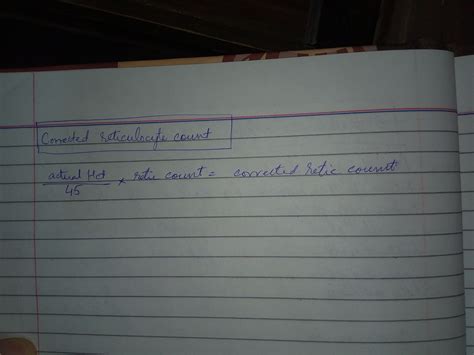 Corrected reticulocyte count
actual Hct
45 × retic count = corrected retic count